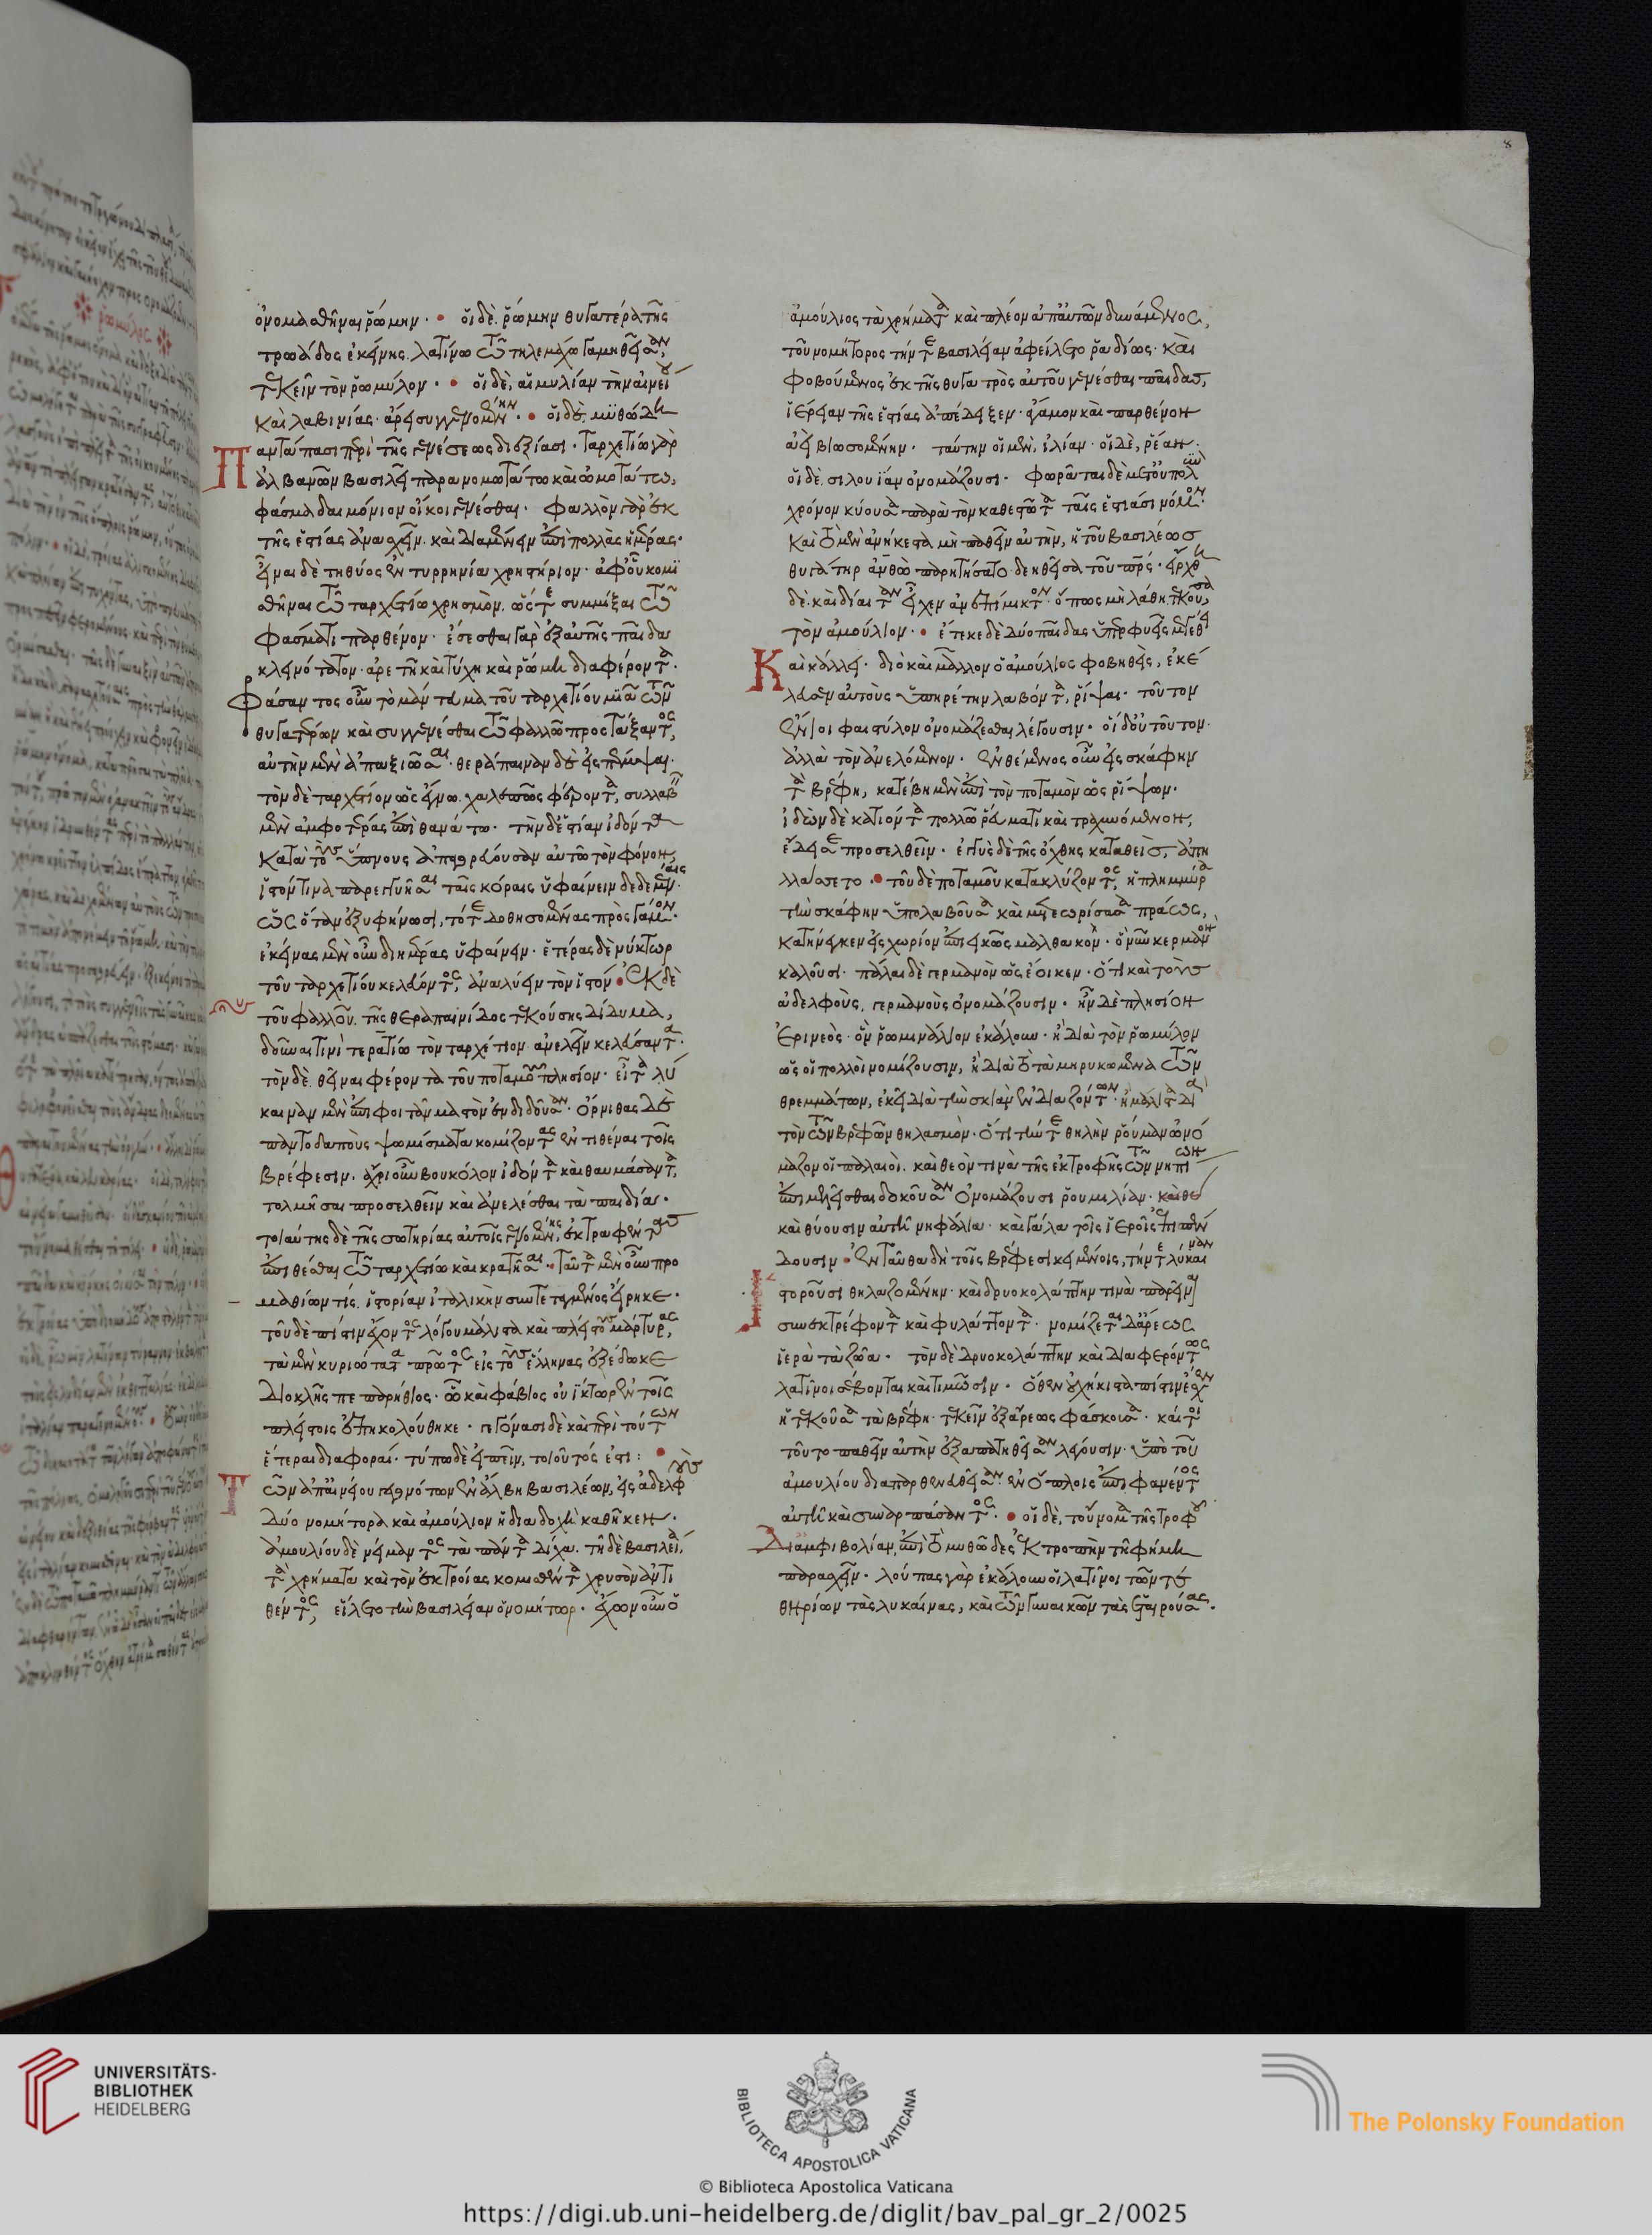 ὄνομα θῆναι ῥώμην · οἱ δὲ, ῥώμην θυγατέρα τῆς
τρωάδος ἐκείνης, λατίνω τῶ τηλεμάχω γαμηθεῖσαν,
τεκεῖν τὸν ῥωμύλον · οἱ δὲ, αἰμυλίαν τὴν αἰνείου
καὶ λαβινίας, ἄρει συγγενομένην · οἱ δὲ, μυθώδη
Παντάπασι περὶ τῆς γενέσεως διεξίασι · ταρχετίω γὰρ
ἀλβανῶν βασιλεῖ παρανομωτάτω καὶ ὠμοτάτω,
φάσμα δαιμόνιον οἴκοι γενέσθαι · φαλλὸν γὰρ ἐκ
τῆς ἑστίας ἀνασχεῖν καὶ διαμένειν ἐπὶ πολλὰς ἡμέρας ·
εἶναι δὲ τηθύος ἐν τυρρηνία χρηστήριον · ἀφ' οὗ κομι
σθῆναι τῶ ταρχετίω χρησμὸν, ὥστε συμμίξαι τῶ
φάσματι παρθένον · ἔσεσθαι γὰρ ἐξ αὐτῆς παῖδα
κλεινότατον · ἀρετῆ καὶ τύχη καὶ ῥώμη διαφέροντα ·
Φράσαντος οὖν τὸ μάντευμα τοῦ ταρχετίου μιᾶ τῶν
θυγατέρων καὶ συγγενέσθαι τῶ φαλλῶ προστάξαντος,
αὐτὴν μὲν ἀπαξιῶσαι · θεράπαιναν δὲ εἰσπέμψαι ·
τὸν δὲ ταρχέτιον ὡς ἔγνω, χαλεπῶς φέροντα, συλλαβεῖν
μὲν ἀμφοτέρας ἐπὶ θανάτω · τὴν δὲ ἑστίαν ἰδόντα
κατὰ τοὺς ὕπνους ἀπαγορεύουσαν αὐτῶ τὸν φόνον,
ἱστόν τινα παρεγγυῆσαι ταῖς κόραις ὑφαίνειν δεδεμέναις ·
ὡς ὅταν ἐξυφήνωσι, τότε δοθησομένας πρὸς γάμον ·
ἐκείνας μὲν οὖν δι' ἡμέρας ὑφαίνειν · ἑτέρας δὲ νύκτωρ
τοῦ ταρχετίου κελεύοντος, ἀναλύειν τὸν ἱστόν · Ἐκ δὲ
τοῦ φαλλοῦ, τῆς θεραπαινίδος τεκούσης δίδυμα,
δοῦναί τινι τερατίω τὸν ταρχέτιον ἀνελεῖν κελεύσαντα ·
τὸν δὲ, θεῖναι φέροντα τοῦ ποταμοῦ πλησίον · εἶτα λύ
καιναν μὲν ἐπιφοιτᾶν μαστὸν ἐνδιδοῦσαν · ὄρνιθας δὲ
παντοδαποὺς ψωμίσματα κομίζοντας ἐντιθέναι τοῖς
βρέφεσιν, ἄχρι οὗ βουκόλον ἰδόντα καὶ θαυμάσαντα,
τολμῆσαι προσελθεῖν καὶ ἀνελέσθαι τὰ παιδία ·
τοιαύτης δὲ τῆς σωτηρίας αὐτοῖς γενομένης, ἐκτραφέντας
ἐπιθέσθαι τῶ ταρχετίω καὶ κρατῆσαι · ταῦτα μὲν οὖν προ
μαθίων τις, ἱστορίαν ἰταλικὴν συντεταγμένος εἴρηκε ·
τοῦ δὲ πίστιν ἔχοντος λόγου μάλιστα καὶ πλείστους μάρτυρας,
τὰ μὲν κυριώτατα πρῶτος εἰς τοὺς ἕλληνας ἐξέδωκε
Διοκλῆς πεπαρήθιος · ὧ καὶ φάβιος ὁ πίκτωρ ἐν τοῖς
πλείστοις ἐπηκολούθηκε · γεγόνασι δὲ καὶ περὶ τούτων
ἕτεραι διαφοραί · τύπω δὲ εἰπεῖν, τοιοῦτός ἐστι :
Τῶν ἀπ' αἰνείου γεγονότων ἐν ἄλβη βασιλέων, εἰς ἀδελφοὺς
δύο νομήτορα καὶ ἀμούλιον ἡ διαδοχὴ καθῆκεν ·
ἀμουλίου δὲ νείμαντος τὰ πάντα δίχα, τῆ δὲ βασιλεία
τὰ χρήματα καὶ τὸν ἐκ τροίας κομισθέντα χρυσὸν ἀντι
θέντος, εἵλετο τὴν βασιλείαν ὁ νομήτωρ · ἔχων οὖν ὁ
ἀμούλιος τὰ χρήματα καὶ πλέον ἀπ' αὐτῶν δυνάμενος,
τοῦ νομήτορος τήν τε βασιλείαν ἀφείλετο ῥαδίως · καὶ
φοβούμενος ἐκ τῆς θυγατρὸς αὐτοῦ γενέσθαι παῖδας,
ἱέρειαν τῆς ἑστίας ἀπέδειξεν · ἄγαμον καὶ παρθένον
ἀεὶ βιωσομένην · ταύτην οἱ μὲν, ἰλίαν · οἱ δὲ, ῥέαν ·
οἱ δὲ, σιλουΐαν ὀνομάζουσι · φωρᾶται δὲ μετ' οὐ πολὺν
χρόνον κύουσα παρὰ τὸν καθεστῶτα ταῖς ἑστιάσι νόμον ·
καὶ τὸ μὲν ἀνήκεστα μὴ παθεῖν αὐτὴν, ἡ τοῦ βασιλέως
θυγάτηρ ἀνθὼ παρητήσατο δεηθεῖσα τοῦ πρς · εἴρχθη
δὲ καὶ δίαιταν εἶχεν ἀνεπίμικτον · ὅπως μὴ λάθη τεκοῦσα
τὸν ἀμούλιον · ἔτεκε δὲ δύο παῖδας ὑπερφυεῖς μεγέθει
Καὶ κάλλει · διὸ καὶ μᾶλλον ὁ ἀμούλιος φοβηθεὶς, ἐκέ
λευσεν αὐτοὺς ὑπηρέτην λαβόντα, ῥίψαι · τοῦτον
ἔνιοι φαιστύλον ὀνομάζεσθαι λέγουσιν · οἱ δ' οὐ τοῦτον ·
ἀλλὰ τὸν ἀνελόμενον · ἐνθέμενος οὖν εἰς σκάφην
τὰ βρέφη, κατέβη μὲν ἐπὶ τὸν ποταμὸν ὡς ῥίψων ·
ἰδὼν δὲ κατιόντα πολλῶ ῥεύματι καὶ τραχυνόμενον,
ἔδεισε προσελθεῖν · ἐγγὺς δὲ τῆς ὄχθης καταθεὶς, ἀπη
λλάσσετο · τοῦ δὲ ποταμοῦ κατακλύζοντος, ἡ πλημμύρα
τὴν σκάφην ὑπολαβοῦσα καὶ μετεωρίσασα πράως,
κατήνεγκεν εἰς χωρίον ἐπιεικῶς μαλθακὸν · ὃ νῦν κερμανὸν
καλοῦσι · πάλαι δὲ γερμανὸν ὡς ἔοικεν · ὅτι καὶ τοὺς
ἀδελφοὺς, γερμανοὺς ὀνομάζουσιν · ἦν δὲ πλησίον
Ἐρινεὸς · ὃν ῥωμινάλιον ἐκάλουν · ἢ διὰ τὸν ῥωμύλον
ὡς οἱ πολλοὶ νομίζουσιν, ἢ διὰ τὸ τὰ μηρυκώμενα τῶν
θρεμμάτων, ἐκεῖ διὰ τὴν σκιὰν ἐνδιάζοντων · ἢ μάλιστα διὰ
τὸν τῶν βρεφῶν θηλασμὸν · ὅτι τήν τε θηλὴν ῥοῦμαν ὠνό
μαζον οἱ παλαιοὶ, καὶ θεόν τινα τῆς ἐκτροφῆς τῶν νηπίων
ἐπιμελεῖσθαι δοκοῦσαν ὀνομάζουσι ῥουμιλίαν · καὶ θε
καὶ θύουσιν αὐτῆ νηφάλια · καὶ γάλα τοῖς ἱεροῖς ἐπισπέν
δουσιν · Ἐνταῦθα δὴ τοῖς βρέφεσι κειμένοις, τήν τε λύκαιναν
Ἱστοροῦσι θηλαζομένην · καὶ δρυοκολάπτην τινὰ παρεῖναι
συνεκτρέφοντα καὶ φυλάττοντα · νομίζεται δ' ἄρεως
ἱερὰ τὰ ζῶα · τὸν δὲ δρυοκολάπτην καὶ διαφερόντως
λατῖνοι σέβονται καὶ τιμῶσιν · ὅθεν οὐχ ἥκιστα πίστιν ἔσχεν
ἡ τεκοῦσα τὰ βρέφη τεκεῖν ἐξ ἄρεως φάσκουσα · καί τοι
τοῦτο παθεῖν αὐτὴν ἐξαπατηθεῖσαν λέγουσιν · ὑπὸ τοῦ
ἀμουλίου διαπαρθενευθεῖσαν ἐν ὅπλοις ἐπιφανέντος
αὐτῆ καὶ συναρπάσαντος · οἱ δὲ, τοὔνομα τῆς τροφοῦ
Δι' ἀμφιβολίαν, ἐπὶ τὸ μυθῶδες ἐκτροπὴν τῆ φήμη
παρασχεῖν · λούπας γὰρ ἐκάλουν οἱ λατῖνοι τῶν τε
θηρίων τὰς λυκαίνας, καὶ τῶν γυναικῶν τὰς ἑταιρούσας ·
UNIVERSITÄTS-
BIBLIOTHEK
HEIDELBERG
BIBLIOTECA APOSTOLICA VATICANA
The Polonsky Foundation
© Biblioteca Apostolica Vaticana
https://digi.ub.uni-heidelberg.de/diglit/bav_pal_gr_2/0025